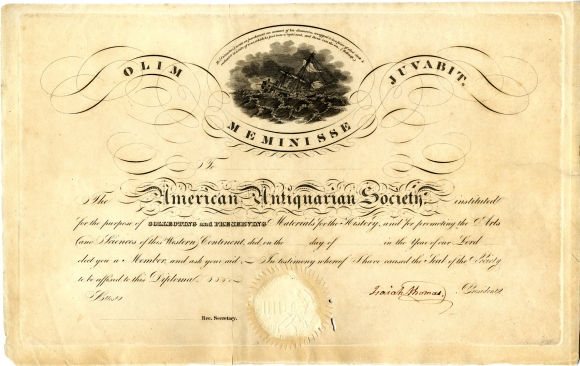 OLIM MEMINISSE JUVABIT.
To
The American Antiquarian Society, instituted
for the purpose of COLLECTING and PRESERVING Materials for the History, and for promoting the Arts
and Sciences of this Western Continent, did, on the day of in the Year of our Lord
elect you a Member, and ask your aid. In testimony whereof I have caused the Seal of the Society
to be affixed to this Diploma.
Isaiah Thomas, President
Attest
Rec. Secretary.